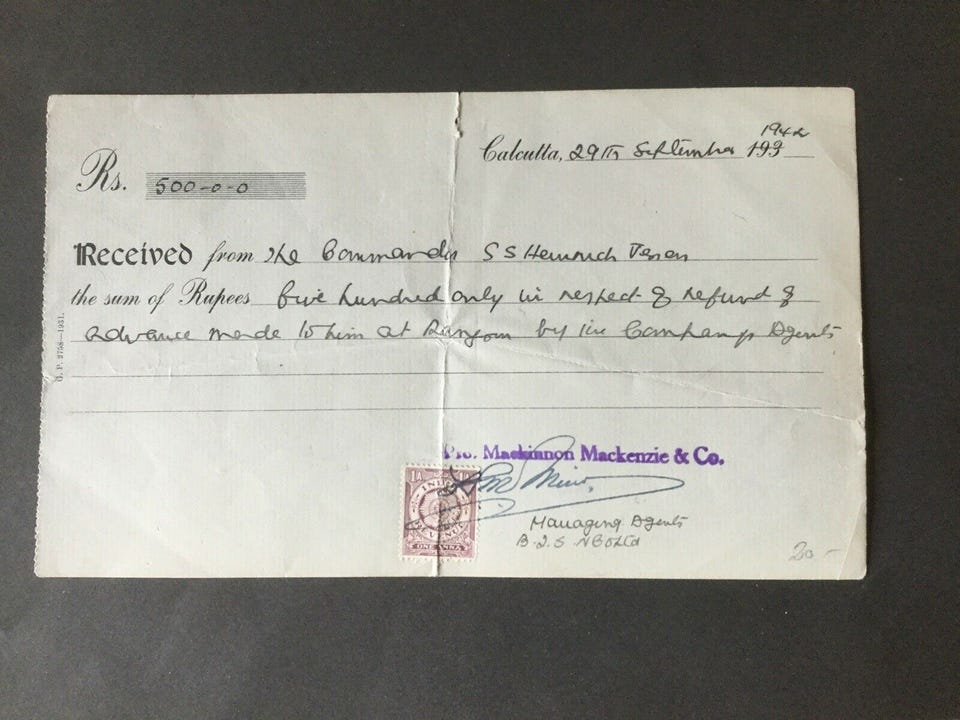 Calcutta, 29th September 193 1942
Rs. 500-0-0
Received from the Commander SS Heinrich Jessen
the sum of Rupees five hundred only in respect of refund of
advance made to him at Rangoon by the Company's Agents
G. P. 2758—1931.
Pro. Mackinnon Mackenzie & Co.
1A 1A
INDIA
REVENUE
ONE ANNA
Managing Agents
B.I.S.N.Co Ltd
20-